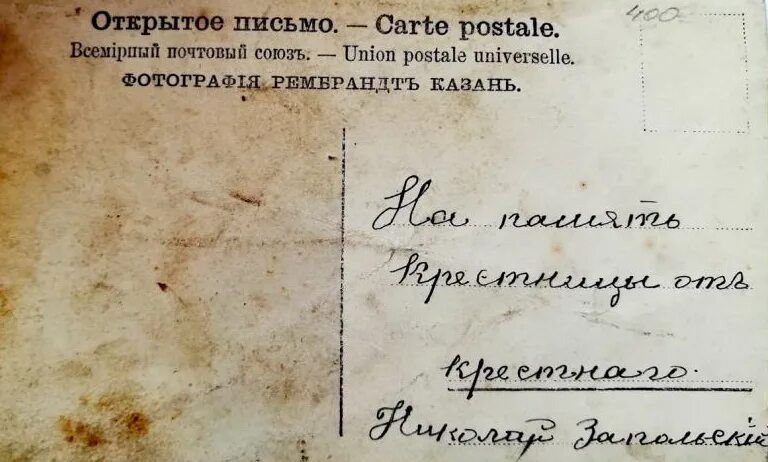 Открытое письмо. — Carte postale.
Всемірный почтовый союзъ. — Union postale universelle.
ФОТОГРАФІЯ РЕМБРАНДТЪ КАЗАНЬ.
400
На память
Крестницы отъ
крестнаго.
Николай Запольскій